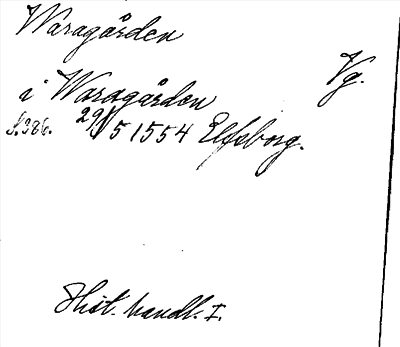 Waragården
Vg.
i Waragården
s. 386. 29/5 1554 Elfsborg.
Hist. handl. I.